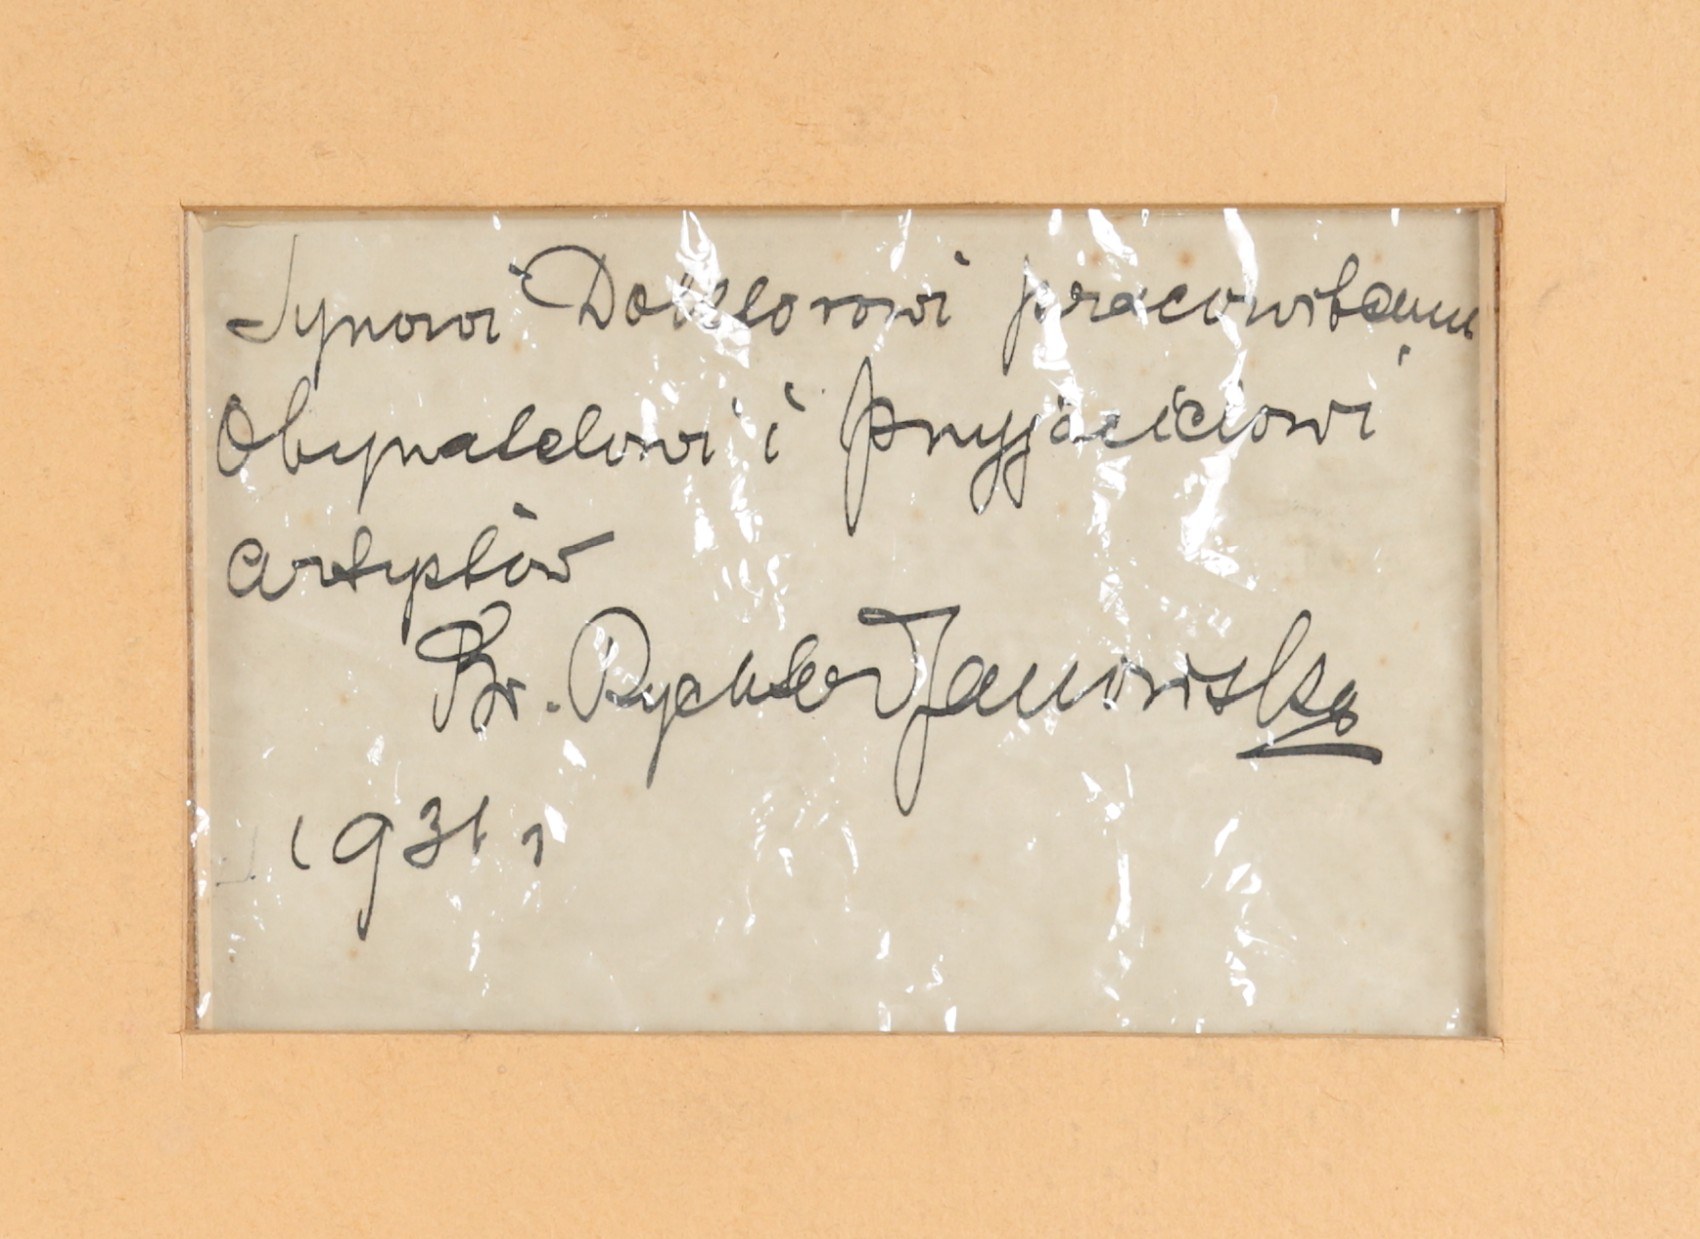 Synowi Doktorowi pracowitemu
Obywatelowi i przyjacielowi
artystów
Br. Rychter Janowska
1931 r